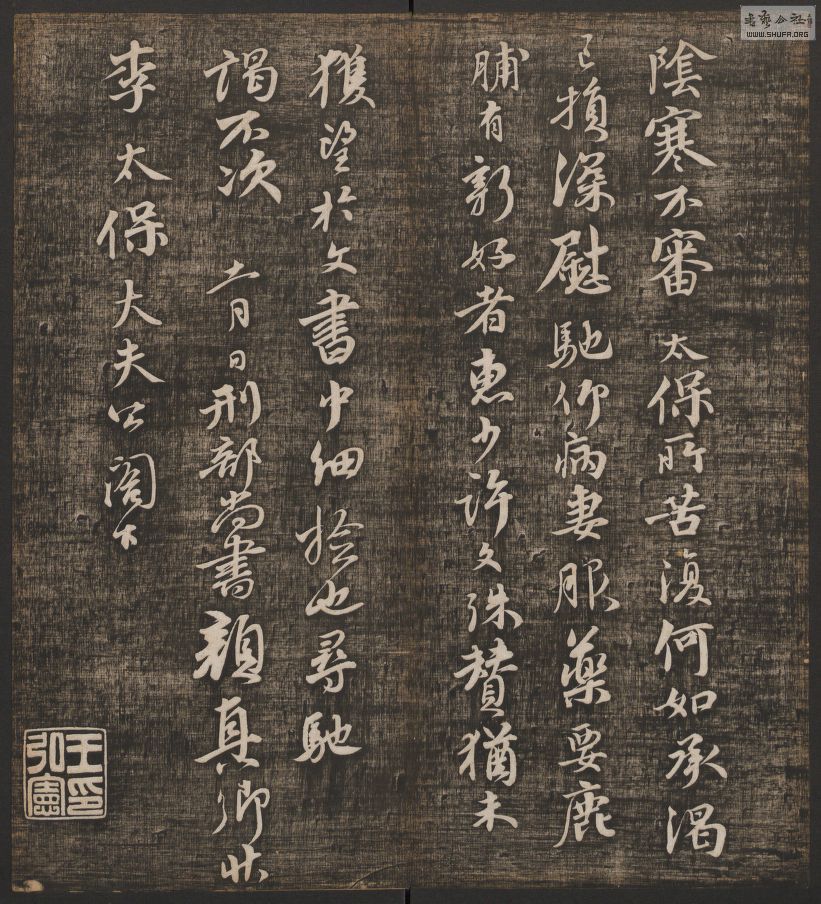 陰寒不審 太保所苦復何如承渴
已損深慰馳仰病妻服藥要鹿
脯有新好者惠少許文殊贊猶未
獲望於文書中細撿也尋馳
謁不次 十一月日刑部尚書顏真卿狀
李太保大夫公閣下
王弘憲印
書藝公社
WWW.SHUFA.ORG